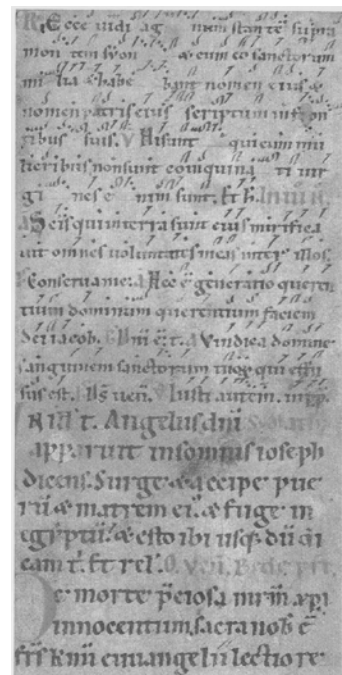 R. Ecce uidi ag num stante supra
mon tem syon & cum eo sanctorum
mi lia & habe bant nomen eius &
nomen patris eius scriptum in fron
tibus suis. V Hi sunt qui cum mu
lieribus non sunt coinquina ti uir
gi nes e nim sunt. Et h.
A S eis qui in terra sunt eius mirifica
uit omnes uoluntates meas inter illos.
Conserua me. A Hec ē generatio queren
tium dominum querentium faciem
dei iacob. A Vindica domine
sanguinem sanctorum tuoꝝ qui effu
sus est. Ps Ds uen. V Iusti autem. in pp.
Angelus dnī
apparuit in somnis ioseph
dicens. Surge & accipe pue
rū & matrem ei. & fuge in
egyptū. & esto ibi usq; dū di
cam t. Et rel.
De morte p̄ciosa mr̄m xp̄i
innocentum. sacra nob ē
fr̄s kmi euuangelii lectio re